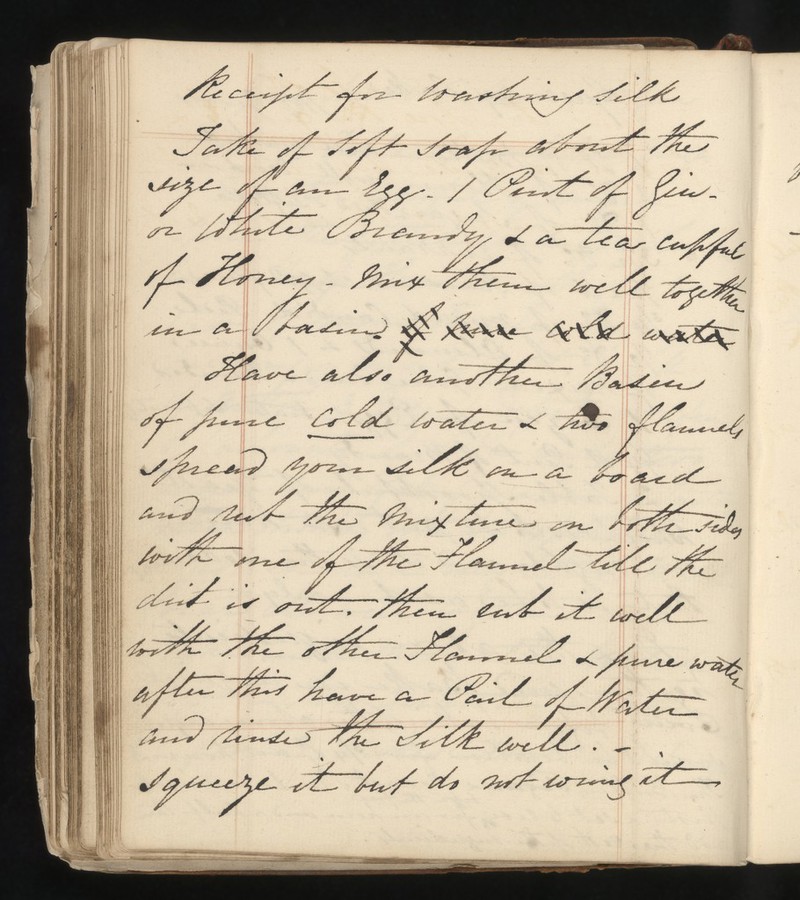 Receipt for washing silk
Take of Soft soap about the
size of an Egg - 1 Pint of Gin -
or White Brandy & a tea cupful
of Honey - Mix them well together
in a basin. of pure cold water
Have also another Basin
of pure cold water & two flannels
spread your silk on a board
and rub the Mixture on both sides
with one of the Flannel till the
dirt is out. then rub it well
with the other Flannel & pure water
after this have a Pail of Water
and rinse the Silk well. -
squeeze it but do not wring it